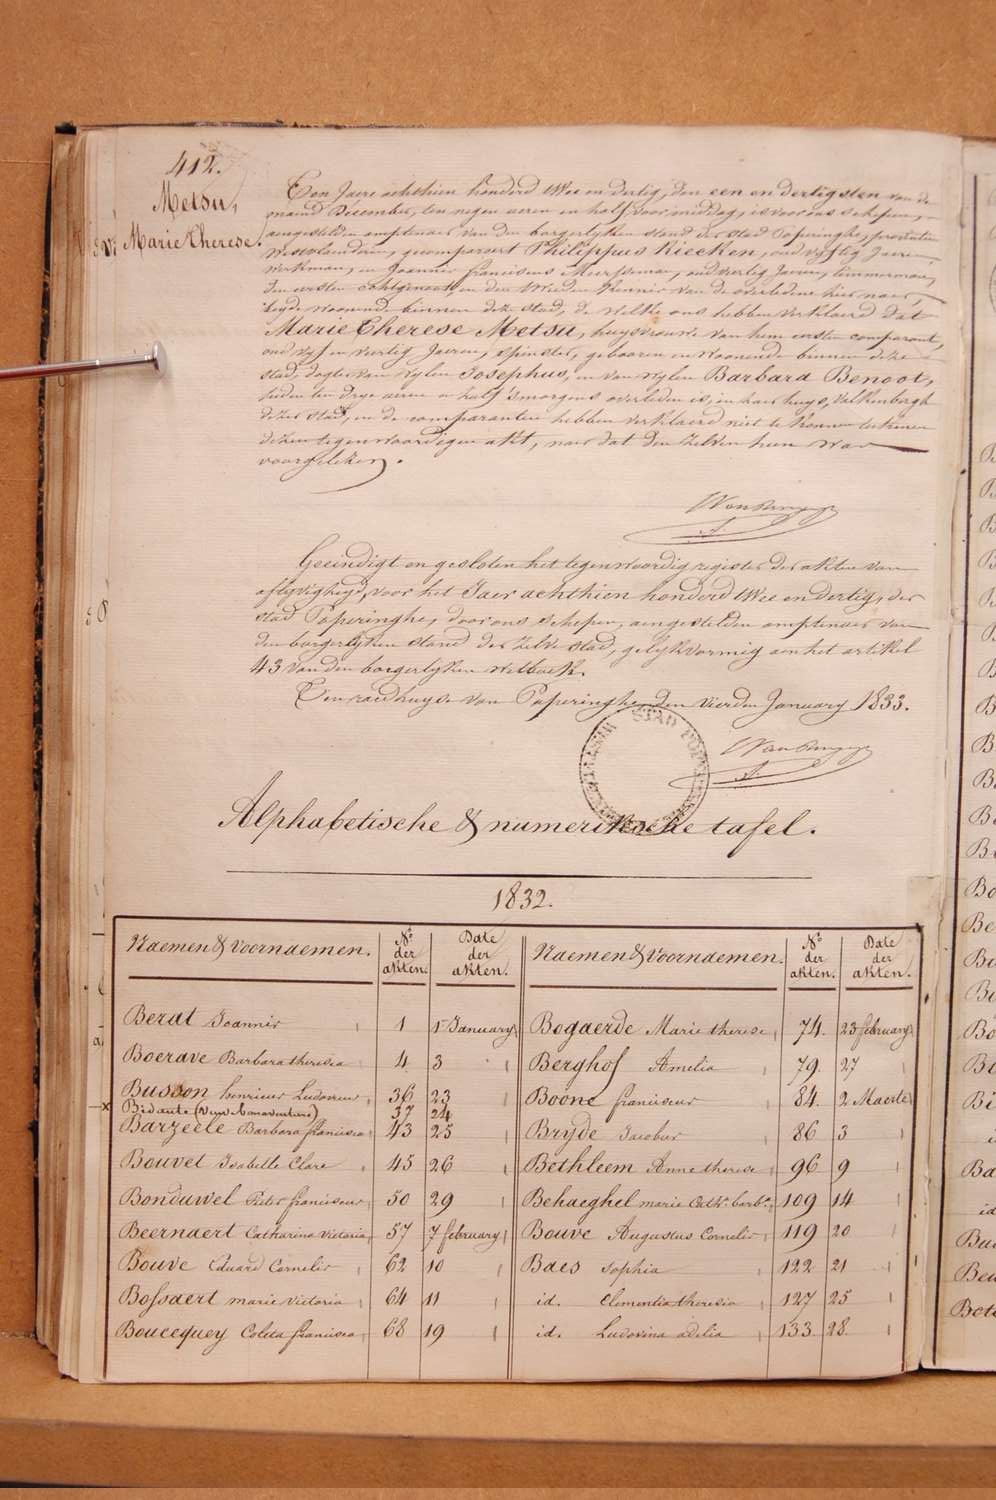 412.
Metsu,
Marie Therese.
Ten Jaere achthien honderd twee en dertig, den een en dertigsten van de
maend December, ten negen ueren en half voor middag, is voor ons schepen,
aengestelden amptenaer van den borgerlyken stand der stad Poperinghe, provintie
Westvlaenderen, gecompareert Philippus Riecken, oud vyftig Jaeren,
werkman, en Joannes franciscus Meersseman, oud veertig Jaeren, timmerman,
den eersten echtgenoot, en den tweeden kennis van de overledene hier naer,
beyde woonende binnen deze stad, de welke ons hebben verklaerd dat
Marie Therese Metsu, huysvrouwe van hem eersten comparant,
oud vyf en veertig Jaeren, spinster, gebooren en woonende binnen deze
stad, dogter van wylen Josephus, en van wylen Barbara Benoot,
heden ten drye ueren en half 's morgens overleden is, in haer huys, Valkenbergh
dezer stad, en de comparanten hebben verklaerd niet te konnen teekenen
dezen tegenwoordigen akt, naer dat den zelven hun was
voorgelezen.
Geeindigt en gesloten het tegenwoordig register der akten van
aflyvigheyd, voor het Jaer achthien honderd twee en dertig, der
stad Poperinghe, door ons schepen, aengestelden amptenaer van
den borgerlyken stand der zelve stad, gelykvormig aen het artikel
43 van den borgerlyken wetboek.
Ten raedhuyse van Poperinghe, den vierden January 1833.
STAD POPERINGHE
Alphabetische & numerieksche tafel.
1832.
Naemen & Voornaemen. No der akten. Date der akten. Naemen & Voornaemen. No der akten. Date der akten.
Berat Joannes 1 1r January Bogaerde Marie therese 74. 23 february
Boerave Barbara theresia 4. 3 Berghof Amelia 79. 27
Busson henricus Ludovicus 36 23 Boone franciscus 84. 2 Maerte
Bidaute (Veuve bonaventure) 37 24
Barzeele Barbara francisca 43 25 Bryde Jacobus 86 3
Bouvet Isabelle Clare 45 26 Bethleem Anne therese 96 9
Bonduwel Pieter franciscus 50 29 Behaeghel marie Cathe. barbe. 109 14
Beernaert Catharina Victoria 57 7 february Bouve Augustus Cornelis 119 20
Bouve Eduard Cornelis 62 10 Baes Sophia 122 21
Bossaert marie victoria 64 11 id. Clementia theresia 127 25
Boucequey Coleta francisca 68 19 id. Ludovina adelia 133 28